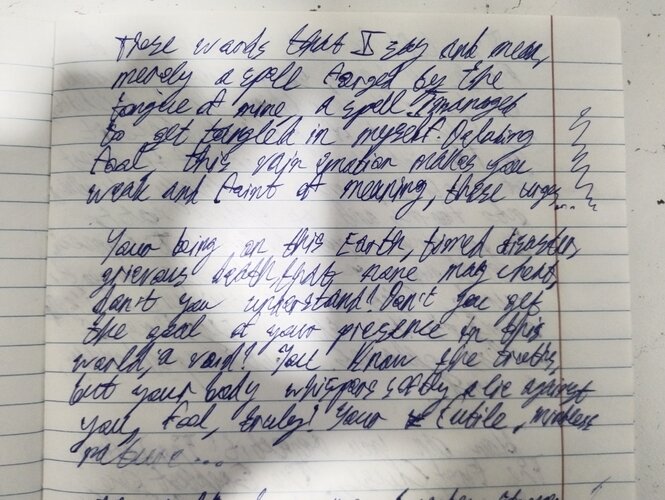 These words that I say and mean,
merely a spell forged by the
tongue of mine, a spell I managed
to get tangled in myself.
fool, this vain emotion makes you
weak and faint of meaning, these urges...
Your being on this Earth, timed disaster,
grievous death that none may cheat,
don't you understand? Don't you get
the goal of your presence in this
world, a void? You know the truths,
but your body whispers softly a lie against
you, fool, truly! Your futile, mindless
nature...